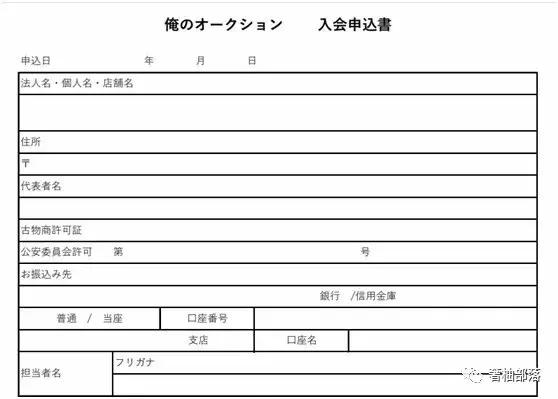 俺のオークション 入会申込書
申込日 年 月 日
法人名・個人名・店舗名
住所
〒
代表者名
古物商許可証
公安委員会許可 第 号
お振込み先
銀行 /信用金庫
普通 / 当座 口座番号
支店 口座名
担当者名
フリガナ
箸柚部落